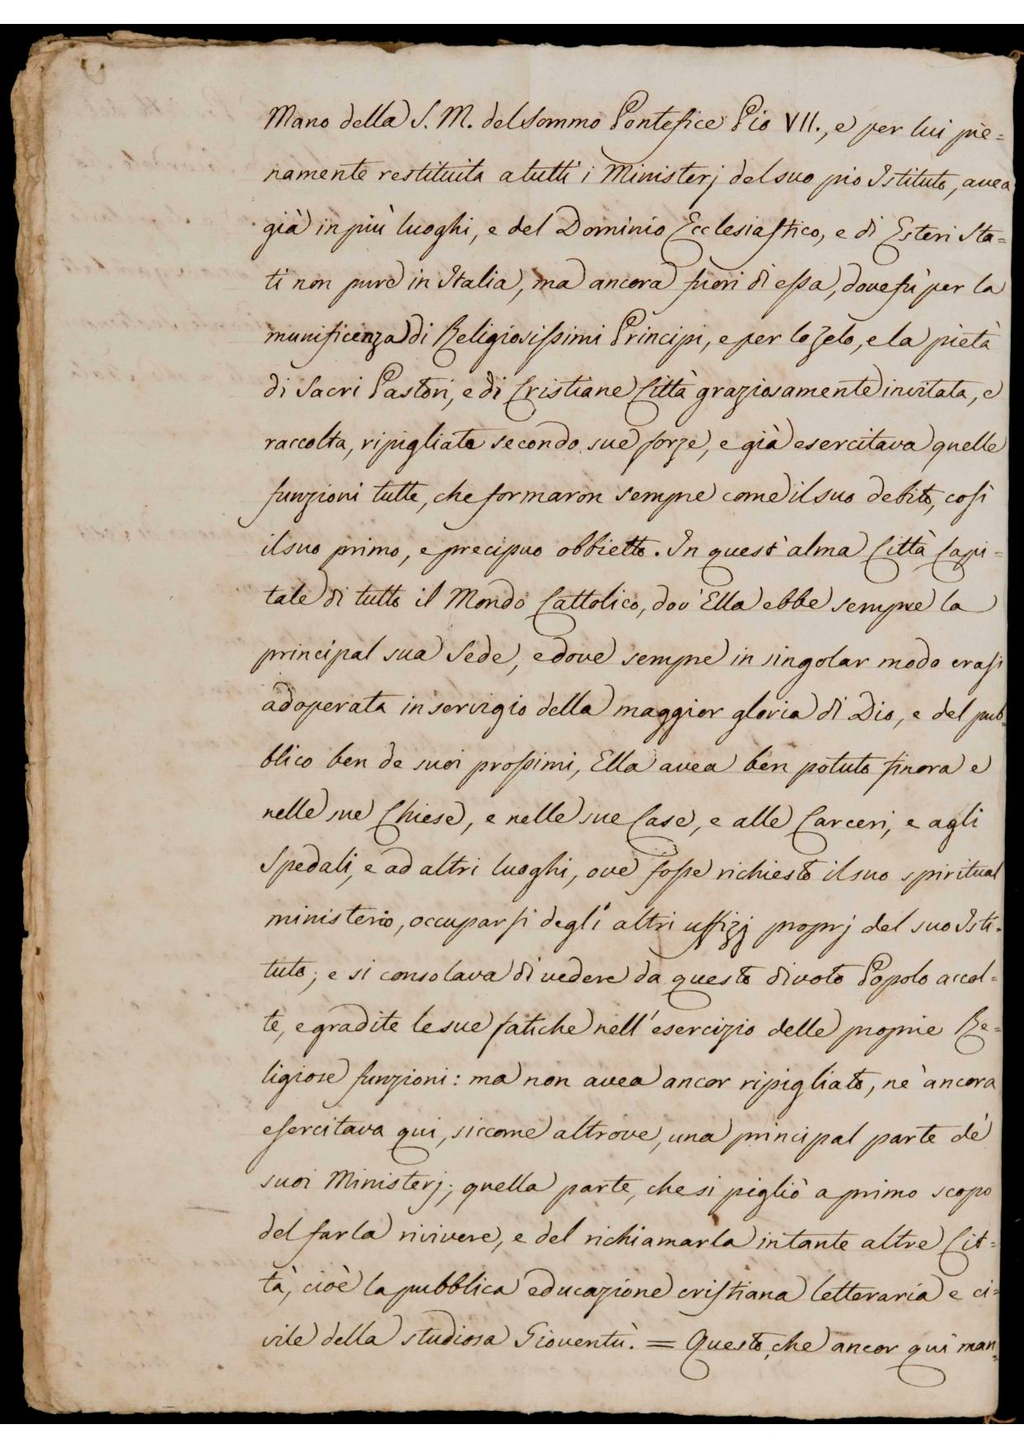 Mano della S. M. del Sommo Pontefice Pio VII., e per lui pie=
namente restituita a tutti i Ministerj del suo pio Istituto, avea
già in più luoghi, e del Dominio Ecclesiastico, e di Esteri Sta=
ti non pure in Italia, ma ancora fuori di essa, dove fù per la
munificenza di Religiosissimi Principi, e per lo zelo, e la pietà
di Sacri Pastori, e di Cristiane Città graziosamente invitata, e
raccolta, ripigliate secondo sue forze, e già esercitava quelle
funzioni tutte, che formaron sempre come il suo debito, così
il suo primo, e precipuo obbietto. In quest'alma Città Capi=
tale di tutto il Mondo Cattolico, dov'Ella ebbe sempre la
principal sua Sede, e dove sempre in singolar modo erasi
adoperata in servigio della maggior gloria di Dio, e del pub=
blico ben de suoi prossimi, Ella avea ben potuto finora e
nelle sue Chiese, e nelle sue Case, e alle Carceri, e agli
Spedali, e ad altri luoghi, ove fosse richiesto il suo spiritual
ministerio, occuparsi degli altri uffizj proprj del suo Isti=
tuto; e si consolava di vedere da questo divoto Popolo accol=
te, e gradite le sue fatiche nell'esercizio delle proprie Re=
ligiose funzioni: ma non avea ancor ripigliato, nè ancora
esercitava qui, siccome altrove, una principal parte de'
suoi Ministerj; quella parte, che si pigliò a primo scopo
del farla rivivere, e del richiamarla in tante altre Cit=
tà, cioè la pubblica educazione cristiana letteraria e ci=
vile della studiosa Gioventù. = Questo, che ancor qui man=